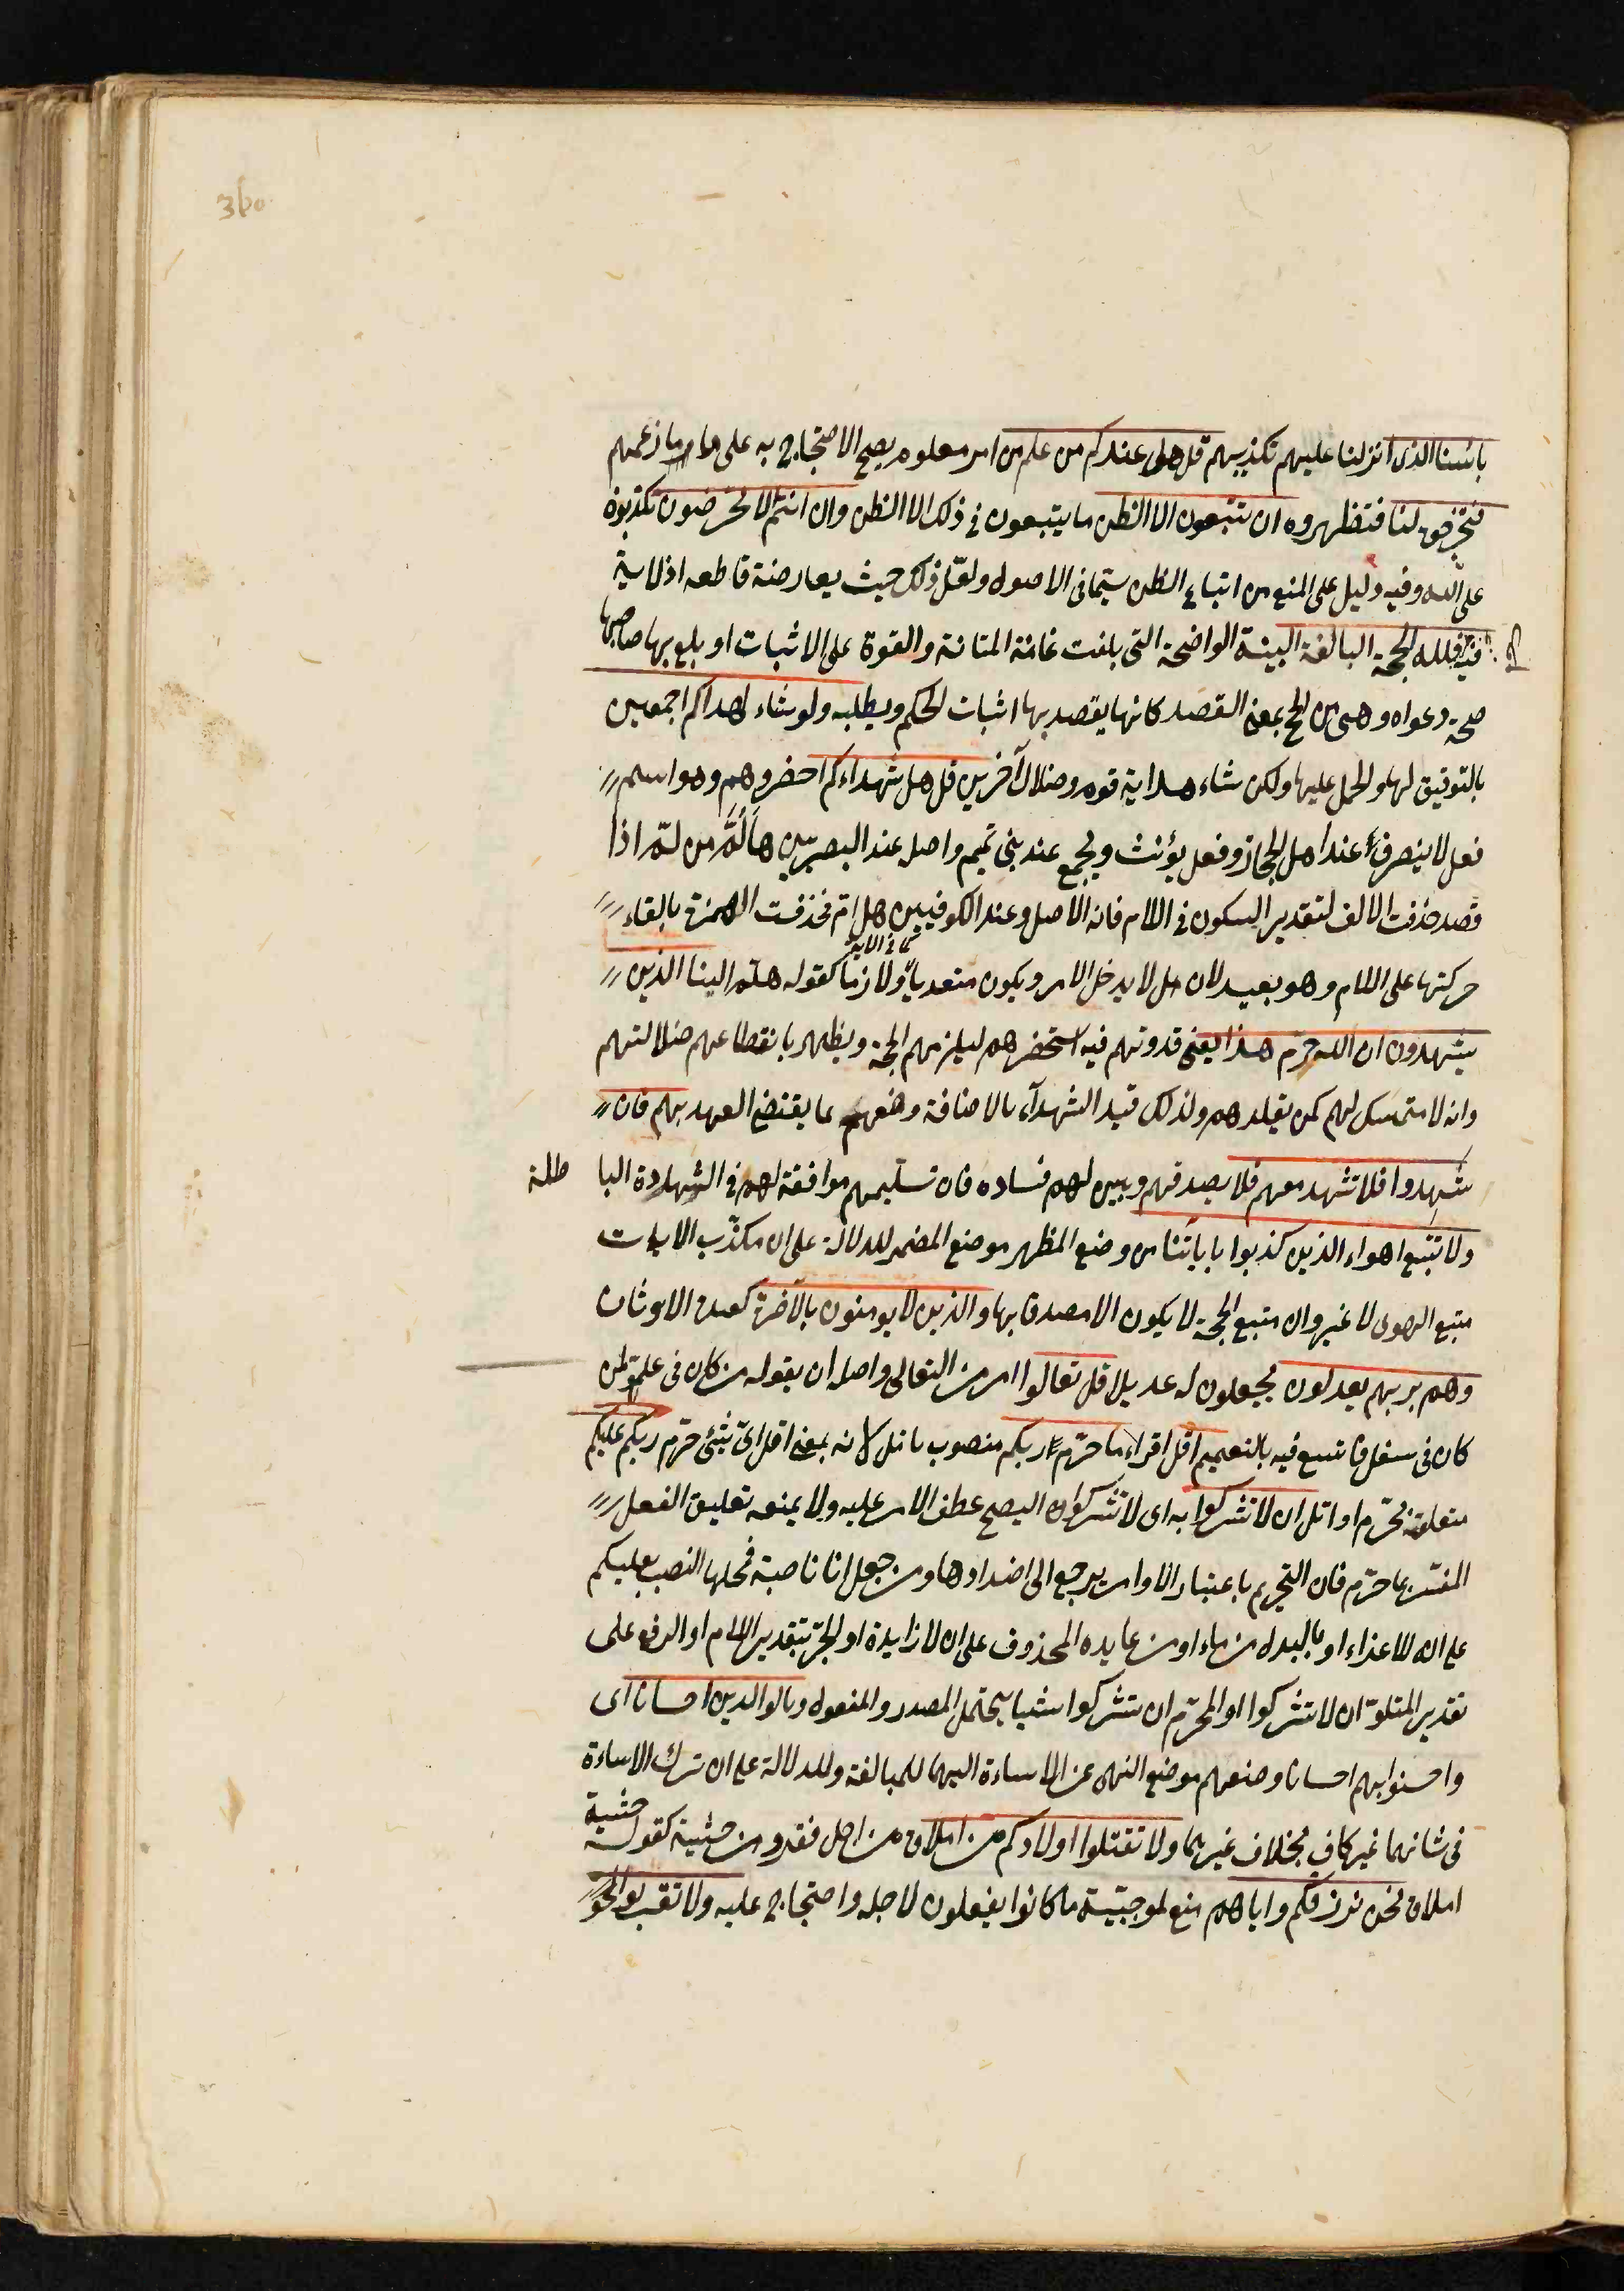 360
بائسنا الذى انزلنا عليهم تكذيبهم قل هل عندكم من علم من امر معلوم يصح الاحتجاج به على ما زعمهم
فتخرجوه لنا فتظهروه ان تتبعون الا الظن ما يتبعون فى ذلك الا الظن وان انتم الا تخرصون تكذبون
على الله وفيه دليل على المنع من اتباع الظن سيما فى الاصول ولعل ذلك حيث يعارضه قاطع اذ لا آية
فيه قل فلله الحجة البالغة البينة الواضحة التى بلغت غاية المتانة والقوة على الاثبات او بلغ بها صاحبها
صحة دعواه وهى من الحج بمعنى القصد كانها يقصد بها اثبات الحكم ويطلبه ولو شاء لهداكم اجمعين
بالتوفيق لها والحمل عليها ولكن شاء هداية قوم وضلال آخرين قل هل شهداءكم احضروهم وهو اسم
فعل لا ينصرف عند اهل الحجاز وفعل يؤنث ويجمع عند بنى تميم واصله عند البصريين هَالُمَّ من لمّ اذا
قصد حذفت الالف لتقدير السكون فى اللام فانه الاصل وعند الكوفيين هل امّ فحذفت الهمزة بالقاء
حركتها على اللام وهو بعيد لان هل لا يدخل الامر ويكون متعديا كما فى الاية ولازما كقوله هلم الينا الذين
يشهدون ان الله حرم هذا يعنى قدوتهم فيه استحضرهم ليلزمهم الحجة ويظهر بانقطاعهم ضلالتهم
وانه لا متمسك لهم كمن يقلدهم ولذلك قيد الشهدآء بالاضافة وصفهم بما يقتضى العهد بهم فان
شهدوا فلا تشهد معهم فلا يصدقهم وبين لهم فساده فان تسليمهم موافقة لهم فى الشهادة البا طلة
ولا تتبع اهواء الذين كذبوا باياتنا من وضع المظهر موضع المضمر للدلالة على ان مكذّب الايات
متبع الهوى لا غير وان متبع الحجة لا يكون الا مصدقا بها والذين لا يومنون بالآخرة كعبدة الاوثان
وهم بربهم يعدلون يجعلون له عديلا قل تعالوا امر من التعالى واصله ان يقوله من كان فى علو لمن
كان فى سفل فاتسع فيه بالتعميم اتل اقراء ما حرّم ربكم منصوب باتل لانه بمعنى اقل اىّ شئ حرّم ربكم عليكم
متعلق بحرّم او اتل ان لا تشركوا به اى لا تشركوا به ليصح عطف الامر عليه ولا يمنعه تعليق الفعل
المفسّر بما حرّم فان التحريم باعتبار الاوامر يرجع الى اضدادها ومن جعل ان ناصبة فمحلها النصب بعليكم
على انه للاغراء او بالبدل من ما او من عايده المحذوف على ان لا زايدة او الجرّ بتقدير اللام او الرفع على
تقدير المتلوّ ان لا تشركوا او المحرّم ان تشركوا شيا يحتمل المصدر والمفعول وبالوالدين احسانا اى
واحسنوا بهم احسانا وضعهم موضع النهى عن الاساءة اليهما للمبالغة وللدلالة على ان ترك الاساءة
فى شانهما غير كاف بخلاف غيرهما ولا تقتلوا اولادكم من املاق من اجل فقر ومن خشية كقوله خشية
املاق نحن نرزقكم واياهم منع لموجبيّة ما كانوا يفعلون لاجله واحتجاج عليه ولا تقربوا الفو